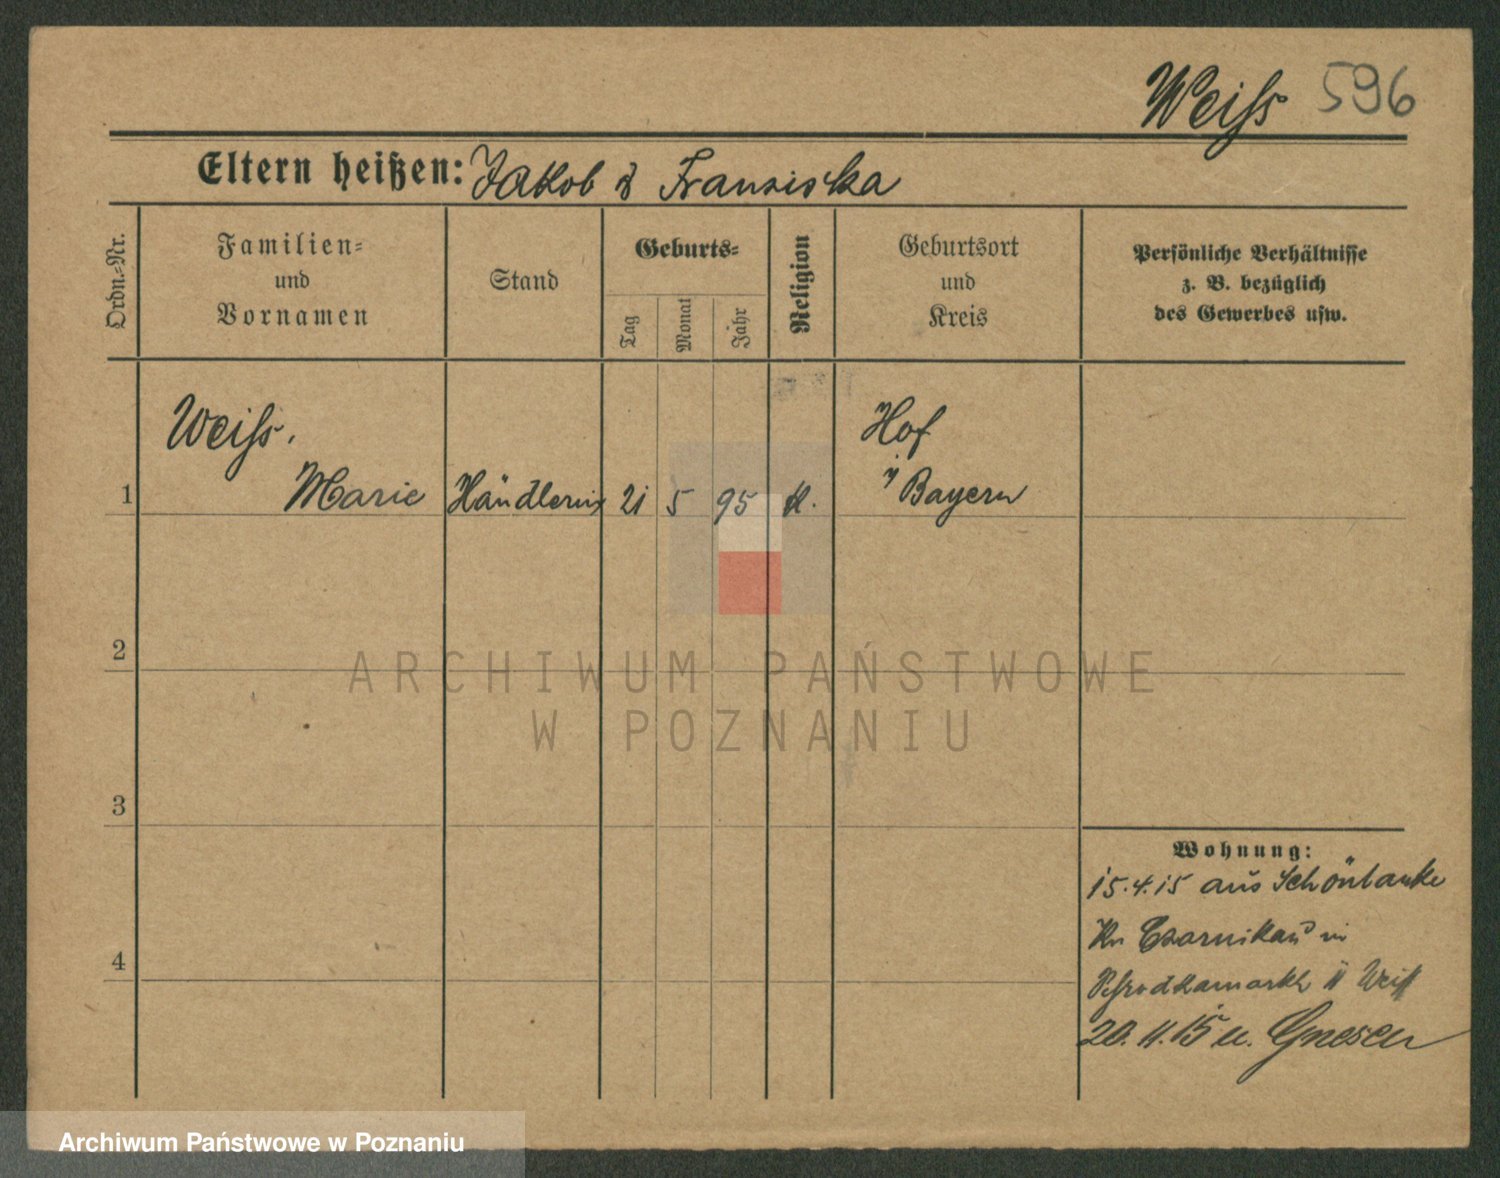 Weiss 596
Eltern heißen: Jakob & Franziska
Ordn.-Nr.
Familien-
und
Vornamen
Stand
Geburts-
Tag
Monat
Jahr
Religion
Geburtsort
und
Kreis
Persönliche Verhältnisse
z. B. bezüglich
des Gewerbes usw.
Weiss.
Hof
1 Marie Händlerin 21 5 95 K. i/Bayern
2
ARCHIWUM PAŃSTWOWE
W POZNANIU
3
Wohnung:
15.4.15 aus Schönlanke
Kr Czarnikau in
4
11 Weiss
20.11.15 n. Gnesen
Archiwum Państwowe w Poznaniu